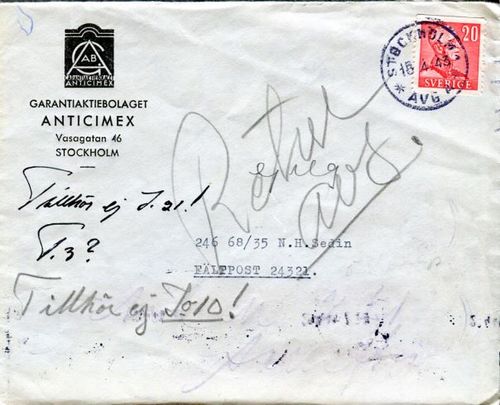 AB
GARANTIAKTIEBOLAGET
ANTICIMEX
GARANTIAKTIEBOLAGET
ANTICIMEX
Vasagatan 46
STOCKHOLM
STOCKHOLM 1
15.4.43
* AVG
20
SVERIGE
Retur
avs.
Tillhör ej I.21!
I.3?
246 68/35 N.H.Sedin
FÄLTPOST 24321.
Tillhör ej I 010!